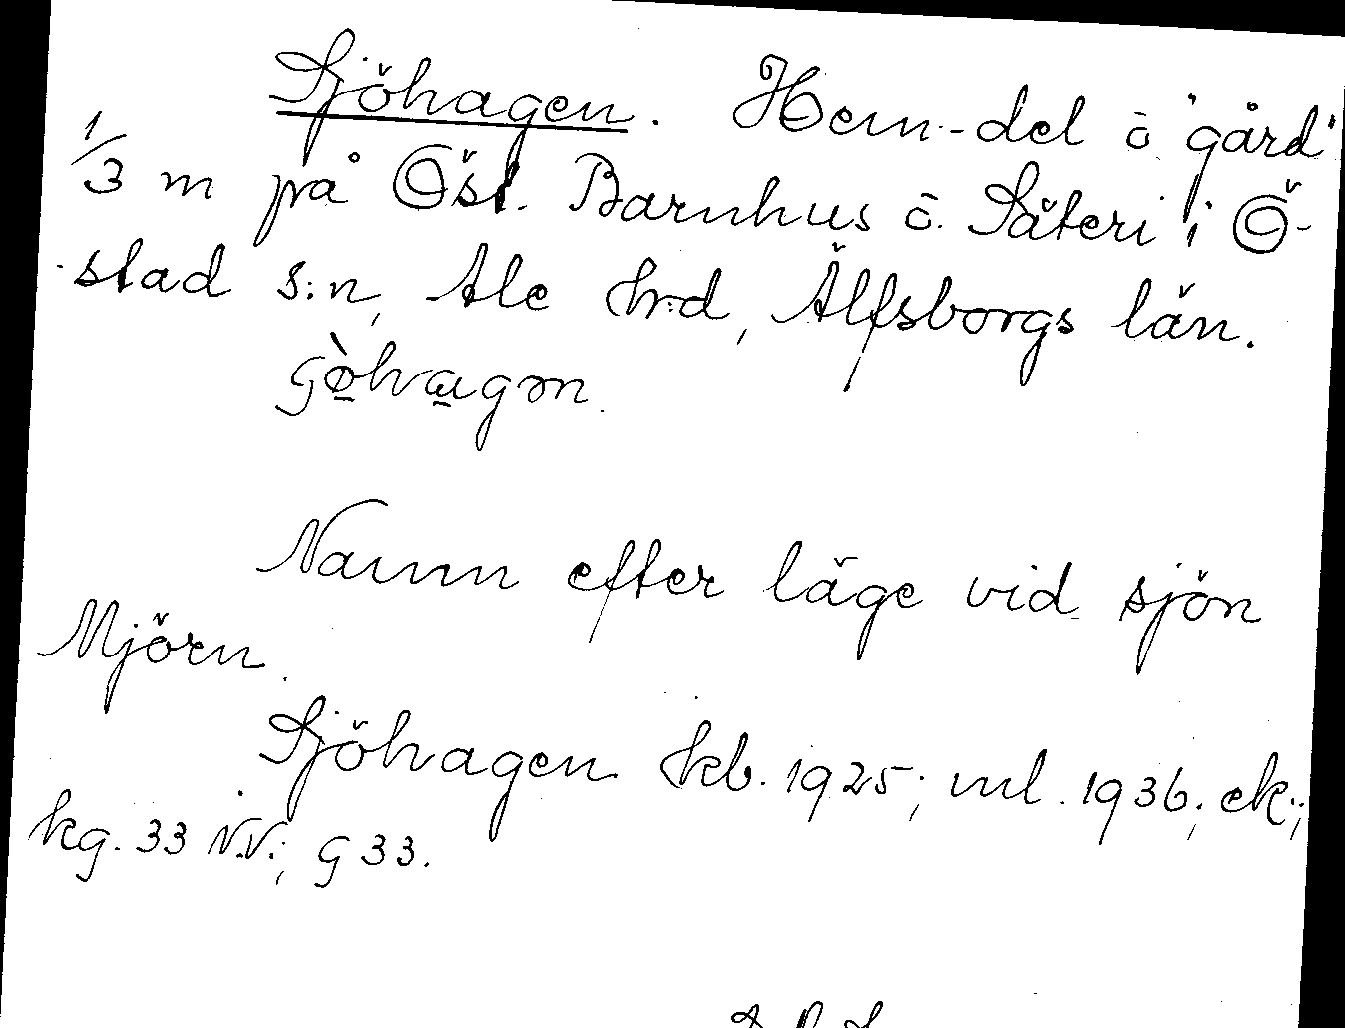 Sjöhagen. Hem-del o "gård"
1/3 m på Öst. Barnhus o. Säteri i Ö-
stad s:n, Ale hrd, Älfsborgs län.
Namn efter läge vid sjön
Mjörn.
Sjöhagen kb. 1925; ml. 1936; ek;
kg. 33 N.V.; G 33.